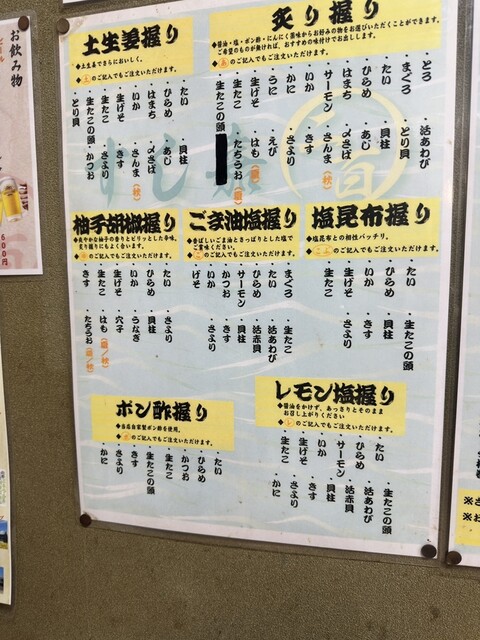 お飲み物
600円
炙り握り
◆醤油・塩・ポン酢・にんにく黒味からお好みの物をお選びいただくことができます。
ご希望のものが無ければ、おすすめの味付けでお出しします。
のご記入でもご注文いただけます。
・とろ
・まぐろ
・たい
・ひらめ
・はまち
・サーモン
・いか
・かに
・うに
・生げそ
・生たこ
・生たこの頭
・活あわび
・とり貝
・貝柱
・あじ
・〆さば
・さんま(秋)
・きす
・さより
・えび
・はも
・たちうお
土生姜握り
◆土生姜でさらにおいしく。
◆土のご記入でもご注文いただけます。
・たい
・ひらめ
・はまち
・いか
・生げそ
・生たこ
・生たこの頭
・とり貝
・貝柱
・あじ
・〆さば
・さんま(秋)
・きす
・さより
・かつお
塩昆布握り
◆塩昆布との相性バッチリ。
のご記入でもご注文いただけます。
・たい
・ひらめ
・いか
・生げそ
・生たこ
・生たこの頭
・貝柱
・きす
・さより
ごま油塩握り
◆香ばしいごま油とさっぱりとした塩で
ご賞味ください。
のご記入でもご注文いただけます。
・まぐろ
・たい
・ひらめ
・サーモン
・かつお
・いか
・げそ
・生たこ
・活あわび
・活赤貝
・貝柱
・きす
・さより
柚子胡椒握り
◆爽やかな柚子の香りとピリッとした辛味。
炙り握りにもよく合います。
のご記入でもご注文いただけます。
・たい
・ひらめ
・いか
・生げそ
・生たこ
・きす
・さより
・貝柱
・うなぎ
・穴子
・はも(夏/秋)
・たちうお(夏/秋)
レモン塩握り
◆醤油をかけず、あっさりとそのまま
お召し上がりください
◆レのご記入でもご注文いただけます。
・たい
・ひらめ
・サーモン
・いか
・生げそ
・生たこ
・生たこの頭
・活あわび
・活赤貝
・貝柱
・きす
・さより
・かに
ポン酢握り
◆当店自家製ポン酢を使用。
◆ポのご記入でもご注文いただけます。
・たい
・ひらめ
・かつお
・生たこ
・生たこの頭
・きす
・さより
・かに